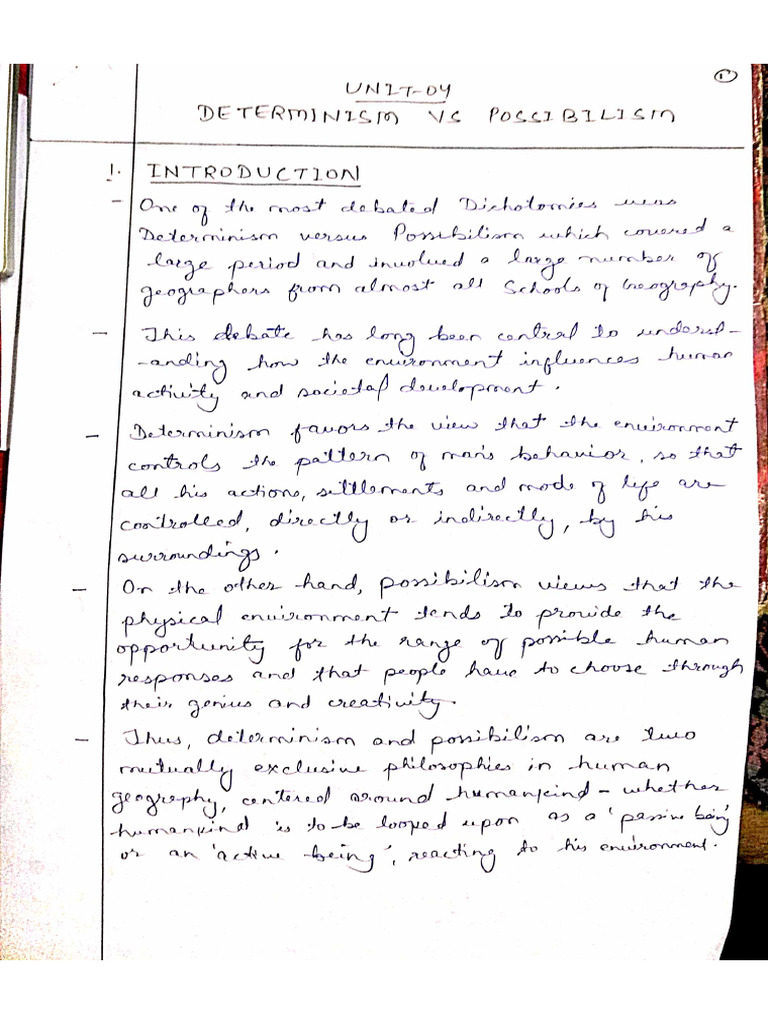 ①
UNIT-04
DETERMINISM VS POSSIBILISM
1. INTRODUCTION
- One of the most debated Dichotomies was
Determinism versus Possibilism which covered a
large period and involved a large number of
geographers from almost all Schools of Geography.
- This debate has long been central to underst-
-anding how the environment influences human
activity and societal development.
- Determinism favors the view that the environment
controls the pattern of man's behavior, so that
all his actions, settlements and mode of life are
controlled, directly or indirectly, by his
surroundings.
- On the other hand, possibilism views that the
physical environment tends to provide the
opportunity for the range of possible human
responses and that people have to choose through
their genius and creativity.
- Thus, determinism and possibilism are two
mutually exclusive philosophies in human
geography, centered around humankind - whether
humankind is to be looped upon as a 'passive being'
or an 'active being', reacting to his environment.